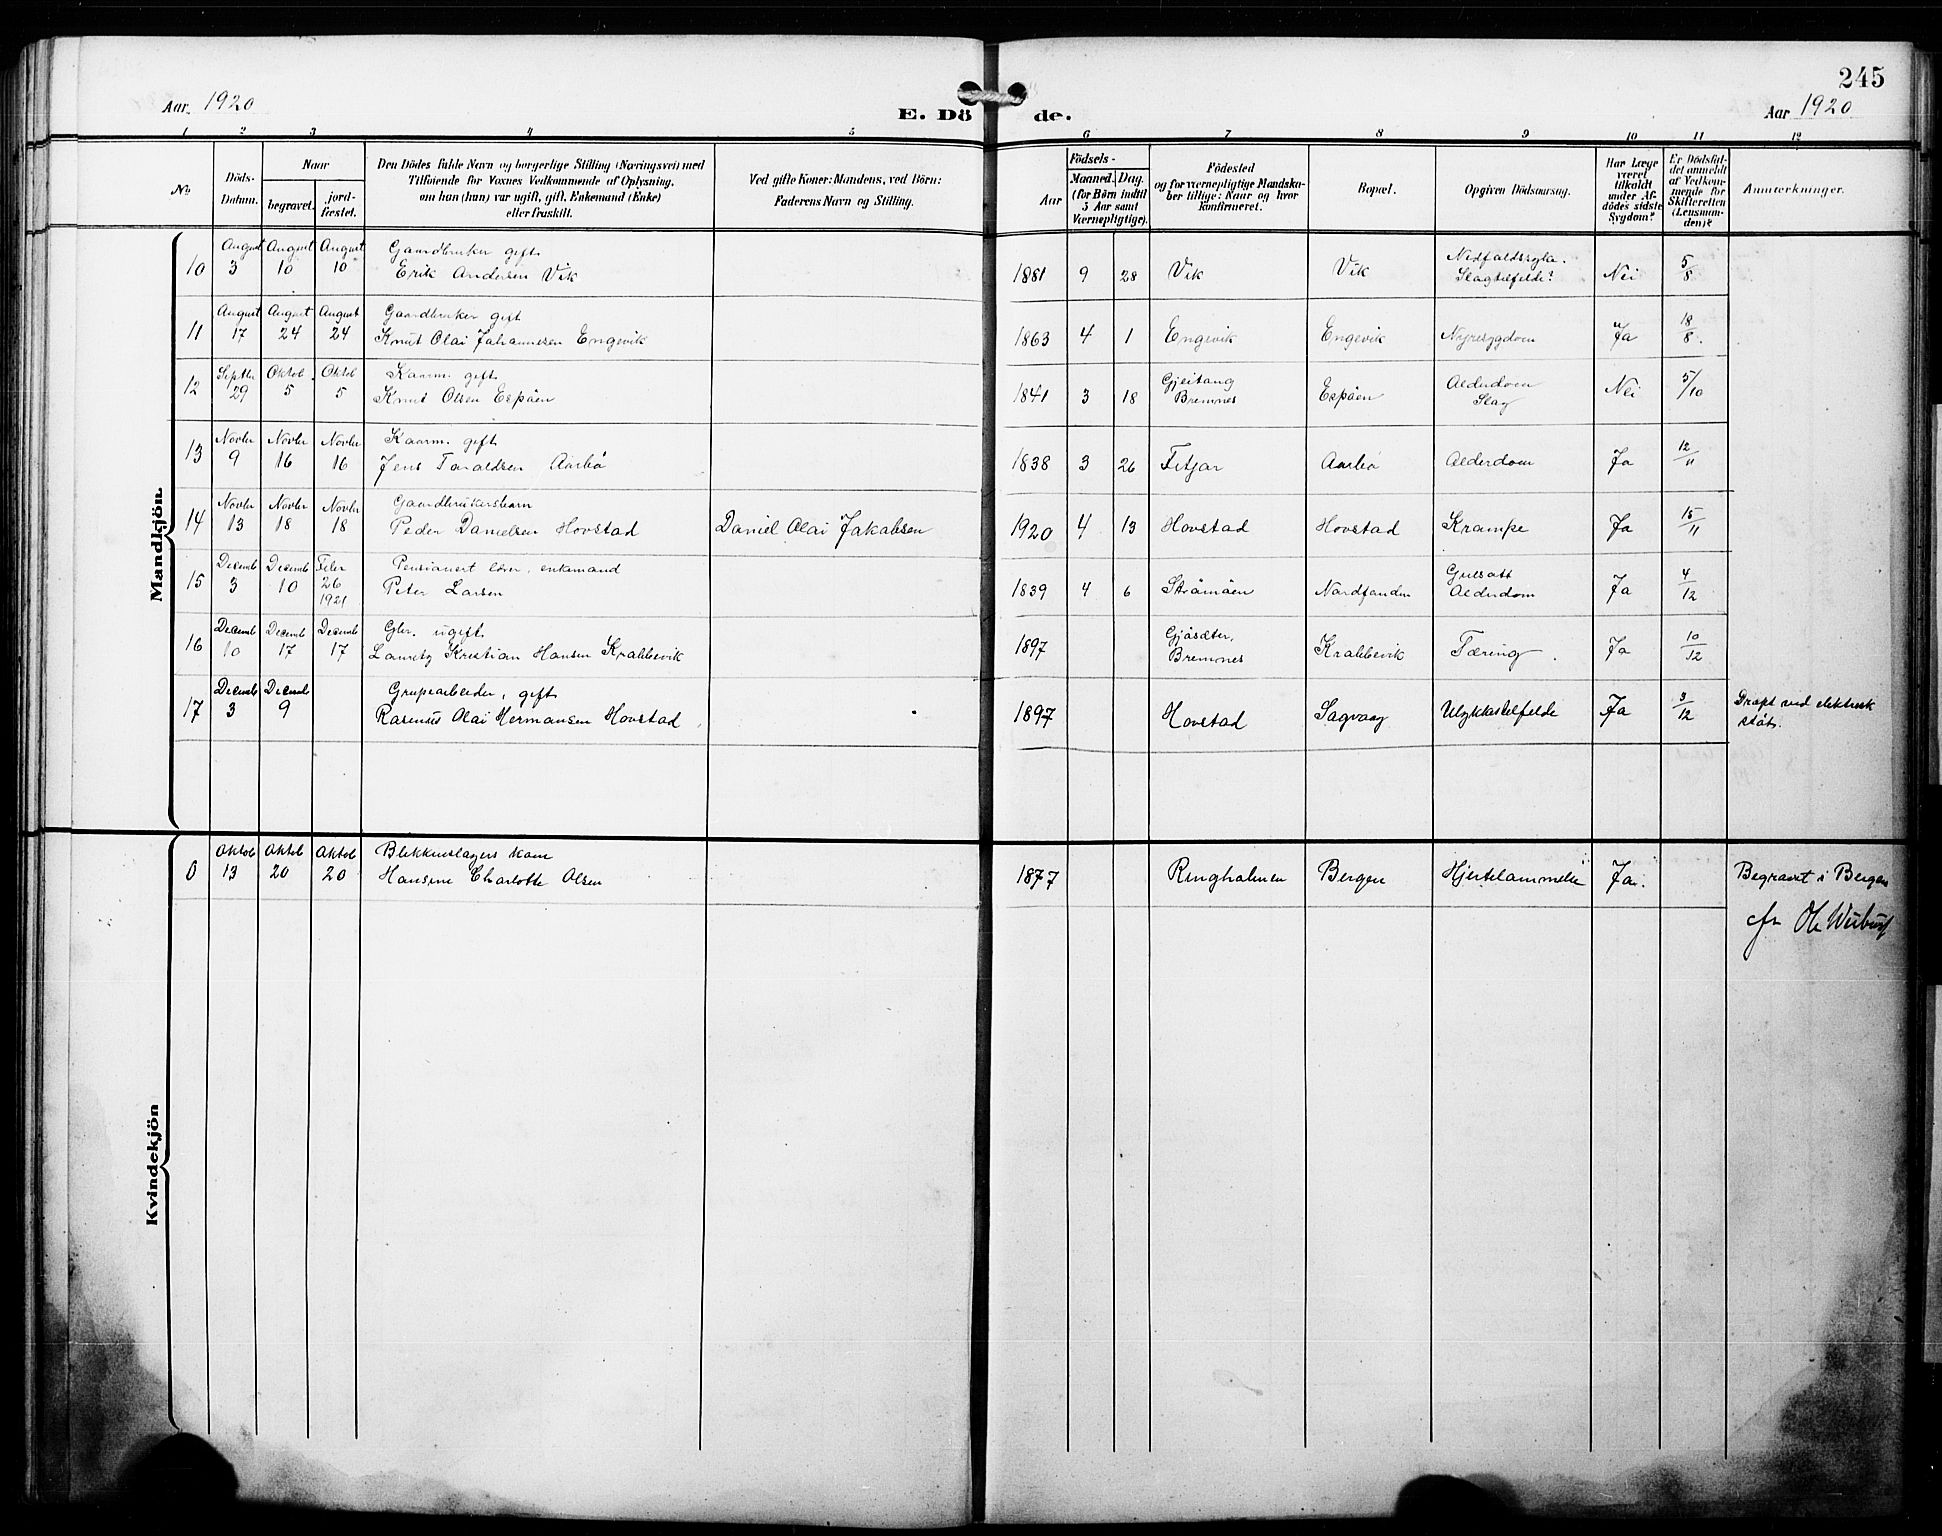 245
Aar 1920
E. Dö
de.
Aar 1920
1 2 3 4 5 6 7 8 9 10 11 12
No.
Döds-
Datum.
Naar
begravet.
jord-
fæstet.
Den Dödes fulde Navn og borgerlige Stilling (Næringsvei) med
Tilföiende for Voxnes Vedkommende af Oplysning,
om han (hun) var ugift, gift, Enkemand (Enke)
eller fraskilt.
Ved gifte Koner: Mandens, ved Börn:
Faderens Navn og Stilling.
Födsels-
Aar
Maaned. Dag.
(for Börn indtil
5 Aar samt
Værnepligtige).
Födested
og for værnepligtige Mandska-
ber tillige: Naar og hvor
konfirmeret.
Bopæl.
Opgiven Dödsaarsag.
Har Læge
været
tilkaldt
under Af-
dödes sidste
Sygdom?
Er Dödsfal-
det anmeldt
af Vedkom-
mende for
Skifteretten
(Lensman-
den)?
Anmærkninger.
Mandkjön.
10 August 3 August 10 August 10 Gaardbruker gift
Erik Andersen Vik 1881 9 28 Vik Vik Slagtilfelde? Nei 5/8
11 August 17 August 24 August 24 Gaardbruker gift
Knut Olai Johannesen Engevik 1863 4 1 Engevik Engevik Nyresygdom Ja 18/8.
12 Septbr 29 Oktob. 5 Oktob 5 Kaarm. gift
Knut Olsen Espöen 1841 3 18 Gjeitang
Bremnes Espöen Alderdom
Slag Nei 5/10
13 Novbr 9 Novbr 16 Novbr 16 Kaarm. gift
Jens Taraldsen Aarbö 1838 3 26 Fitjar Aarbö Alderdom Ja 12/11
14 Novbr 13 Novbr 18 Novbr 18 Gaardbrukersbarn
Peder Danielsen Hovstad Daniel Olai Jakobsen 1920 4 13 Hovstad Hovstad Krampe Ja 15/11
15 Decemb 3 Decemb 10 Febr 26 1921 Pensionert lærer, enkemand
Peter Larsen 1839 4 6 Strömöen Gulsott
Alderdom Ja 4/12
16 Decemb 10 Decemb 17 Decemb 17 Gbr. ugift
Lauritz Kristian Hansen Krabbevik 1897 Gjösæter,
Bremnes Krabbevik Tæring. Ja 10/12
17 Decemb 3 Decemb 9 Grupearbeider, gift
Rasmus Olai Hermansen Hovstad 1897 Hovstad Sagvaag Ulykkestilfelde Ja 3/12 Dræpt ved elektrisk
støt.
Kvindekjön
0 Oktob 13 Oktob 20 Oktob 20 Blikkenslagers kone
Hansine Charlotte Olsen 1877 Ringholmen Bergen Hjertelammelse Ja. Begravet i Bergen
cfr